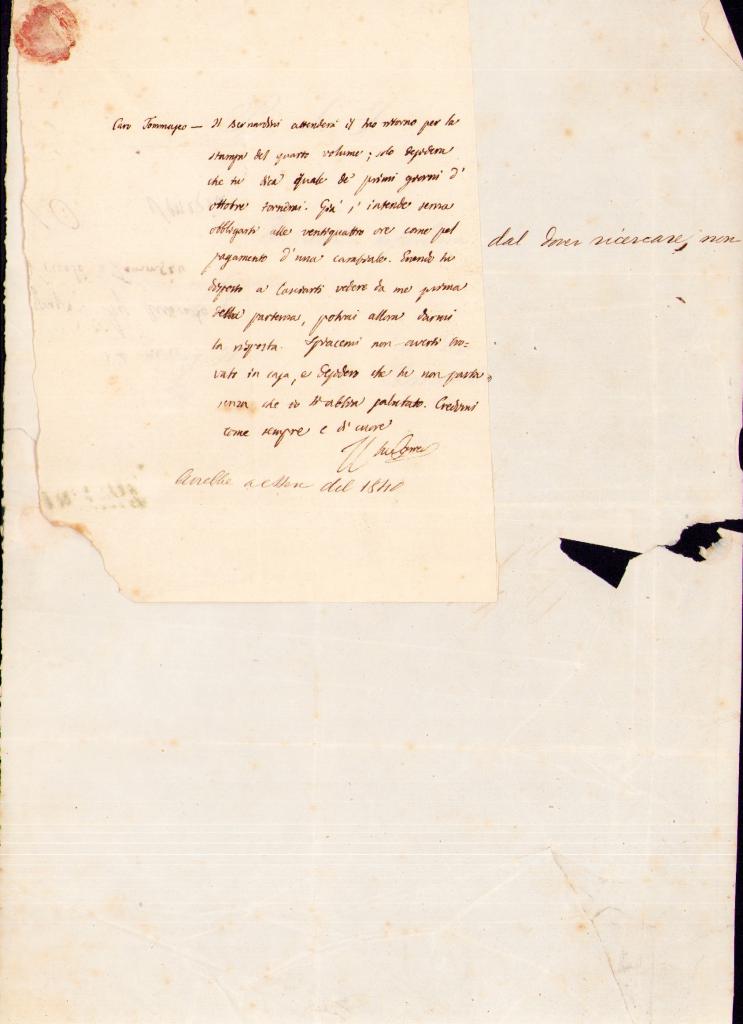 Caro Tommaseo — Il Bernardini attenderà il tuo ritorno per la
stampa del quarto volume; solo desidera
che tu dica quale de' primi giorni d'
ottobre tornerai. Già s'intende senza
obbligarti alle ventiquattro ore come pel
pagamento d'una cambiale. Essendo tu
disposto a lasciarti vedere da me prima
della partenza, potrai allora darmi
la risposta. Spiacemi non averti tro-
vato in casa, e desidero che tu non parta
senza che io t'abbia salutato. Credimi
come sempre e di cuore
Il tuo
del 1840
dal dover ricercare, non